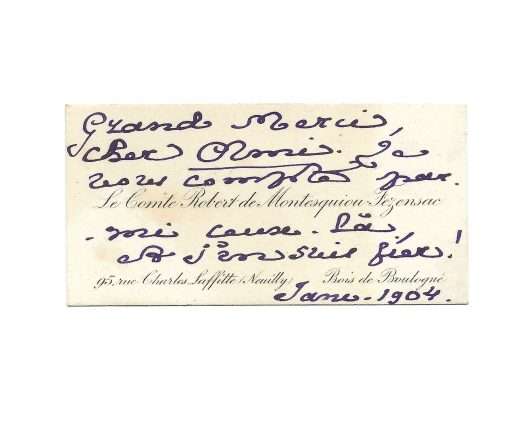 Grand Merci,
cher Ami. Je
vous compte par-
Le Comte Robert de Montesquiou-Fezensac
-mi ceux-là,
et j'en suis fier!
95, rue Charles Laffitte (Neuilly) Bois de Boulogne
Janv. 1904.